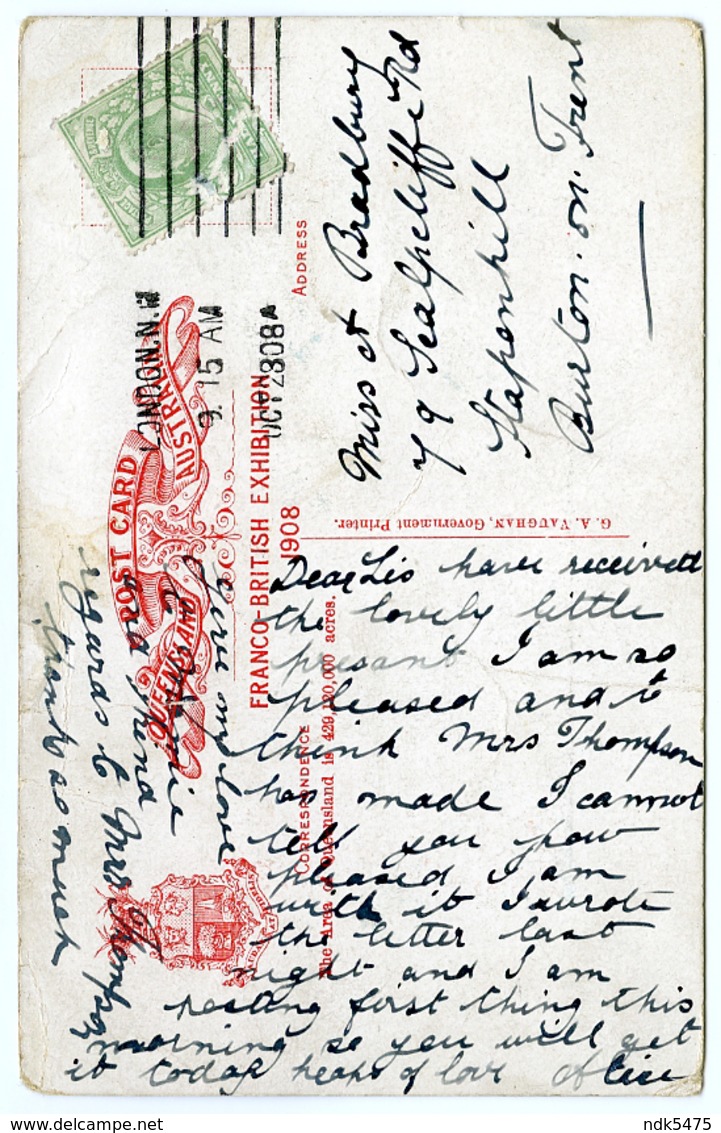 POST CARD
QUEENSLAND AUSTRALIA
FRANCO-BRITISH EXHIBITION
1908
LONDON.N.W
9.15 AM
OCT 28 08 A
ADDRESS
Miss A Bradbury
79 Scalpcliffe Rd
Stapenhill
Burton. on. Trent
G. A. VAUGHAN, Government Printer.
CORRESPONDENCE
The Area of Queensland is 429,120,000 acres.
Dear Sis have received
the lovely little
present I am so
pleased and to
think Mrs Thompson
has made I cannot
tell you how
pleased I am
with it I wrote
the letter last
night and I am
posting first thing this
morning so you will get
it today heaps of love
Give my love
to
and kind
regards to Mrs Thompson
thanks so much
ndk5475